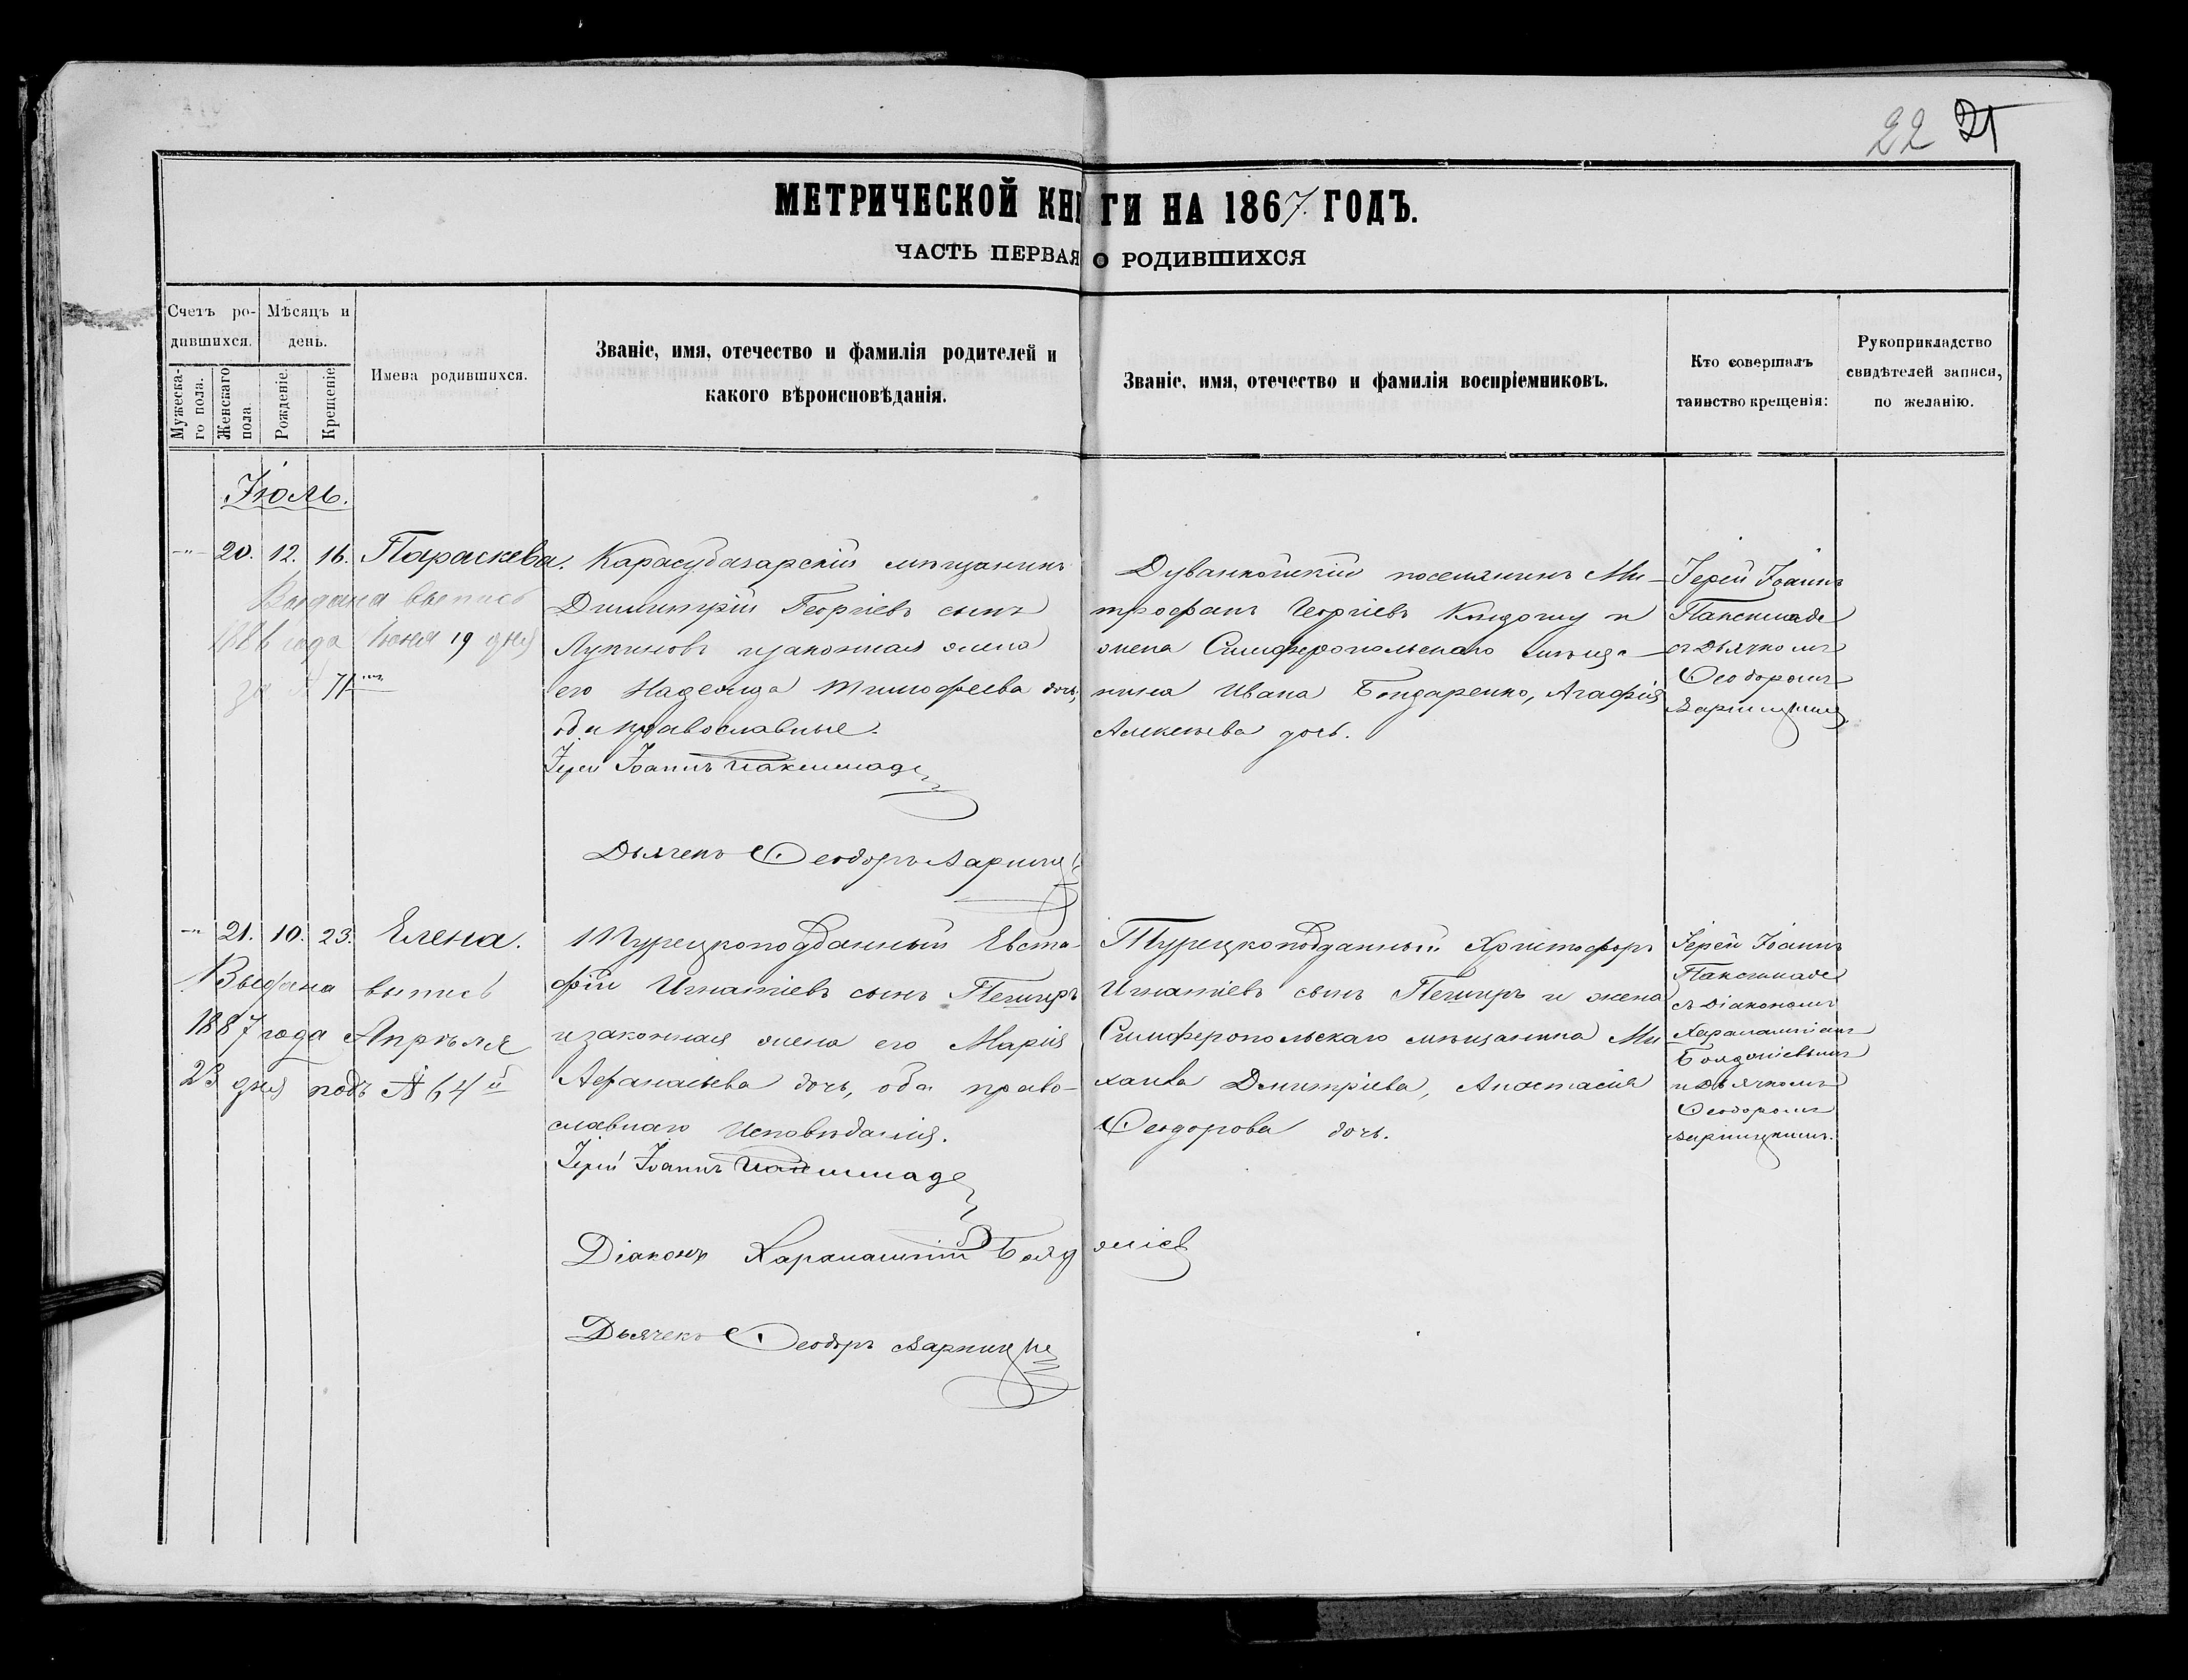 22 21
МЕТРИЧЕСКОЙ КНИГИ НА 1867. ГОДЪ.
ЧАСТЬ ПЕРВАЯ О РОДИВШИХСЯ
Счетъ ро-
дившихся.
Мужеска-
го пола.
Женскаго
пола.
Мѣсяцъ и
день.
Рожденіе.
Крещеніе.
Имена родившихся.
Званіе, имя, отечество и фамилія родителей и
какого вѣроисповѣданія.
Званіе, имя, отечество и фамилія воспріемниковъ.
Кто совершалъ
таинство крещенія:
Рукоприкладство
свидѣтелей записи,
по желанію.
Іюль.
-"- 20. 12. 16. Параскева.
Выдана выпись
1886 года Іюня 19 дня
за № 71
Карасубазарскій мѣщанинъ
Димитрій Георгіевъ сынъ
Лупиновъ и законная жена
его Надежда Тимофеева дочь,
оба православные.
Іерей Іоаннъ Паксимаде
Дьячекъ Ѳеодоръ
Дуванкойскій поселянинъ Ми-
трофанъ Георгіевъ и
жена Симферопольскаго мѣща-
нина Ивана Бондаренко, Агафія
Алексѣева дочь.
Іерей Іоаннъ
Паксимаде
съ Дьячкомъ
Ѳеодоромъ
-"- 21. 10. 23. Елена.
Выдана выпись
1887 года Апрѣля
23 дня подъ № 64й
Турецкоподданный Евста-
фій Игнатіевъ сынъ
и законная жена его Марія
Афанасьева дочь, оба право-
славнаго Исповѣданія.
Іерей Іоаннъ Паксимаде
Діаконъ Харалампій Бояджіев
Дьячекъ Ѳеодоръ
Турецкоподданный Христофоръ
Игнатіевъ сынъ и жена
Симферопольскаго мѣщанина Ми-
хаила Дмитріева, Анастасія
Ѳеодорова дочь.
Іерей Іоаннъ
Паксимаде
съ Діакономъ
Харалампіемъ
Бояджіевымъ
и Дьячкомъ
Ѳеодоромъ